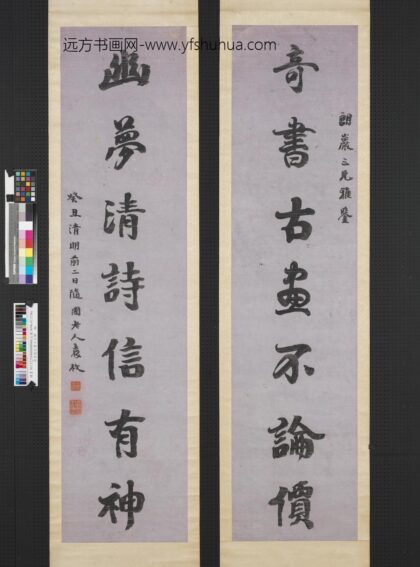 远方书画网-www.yfshuhua.com
朗巖三兄雅鑒
奇書古畫不論價
幽夢清詩信有神
癸丑清明前二日隨園老人袁枚